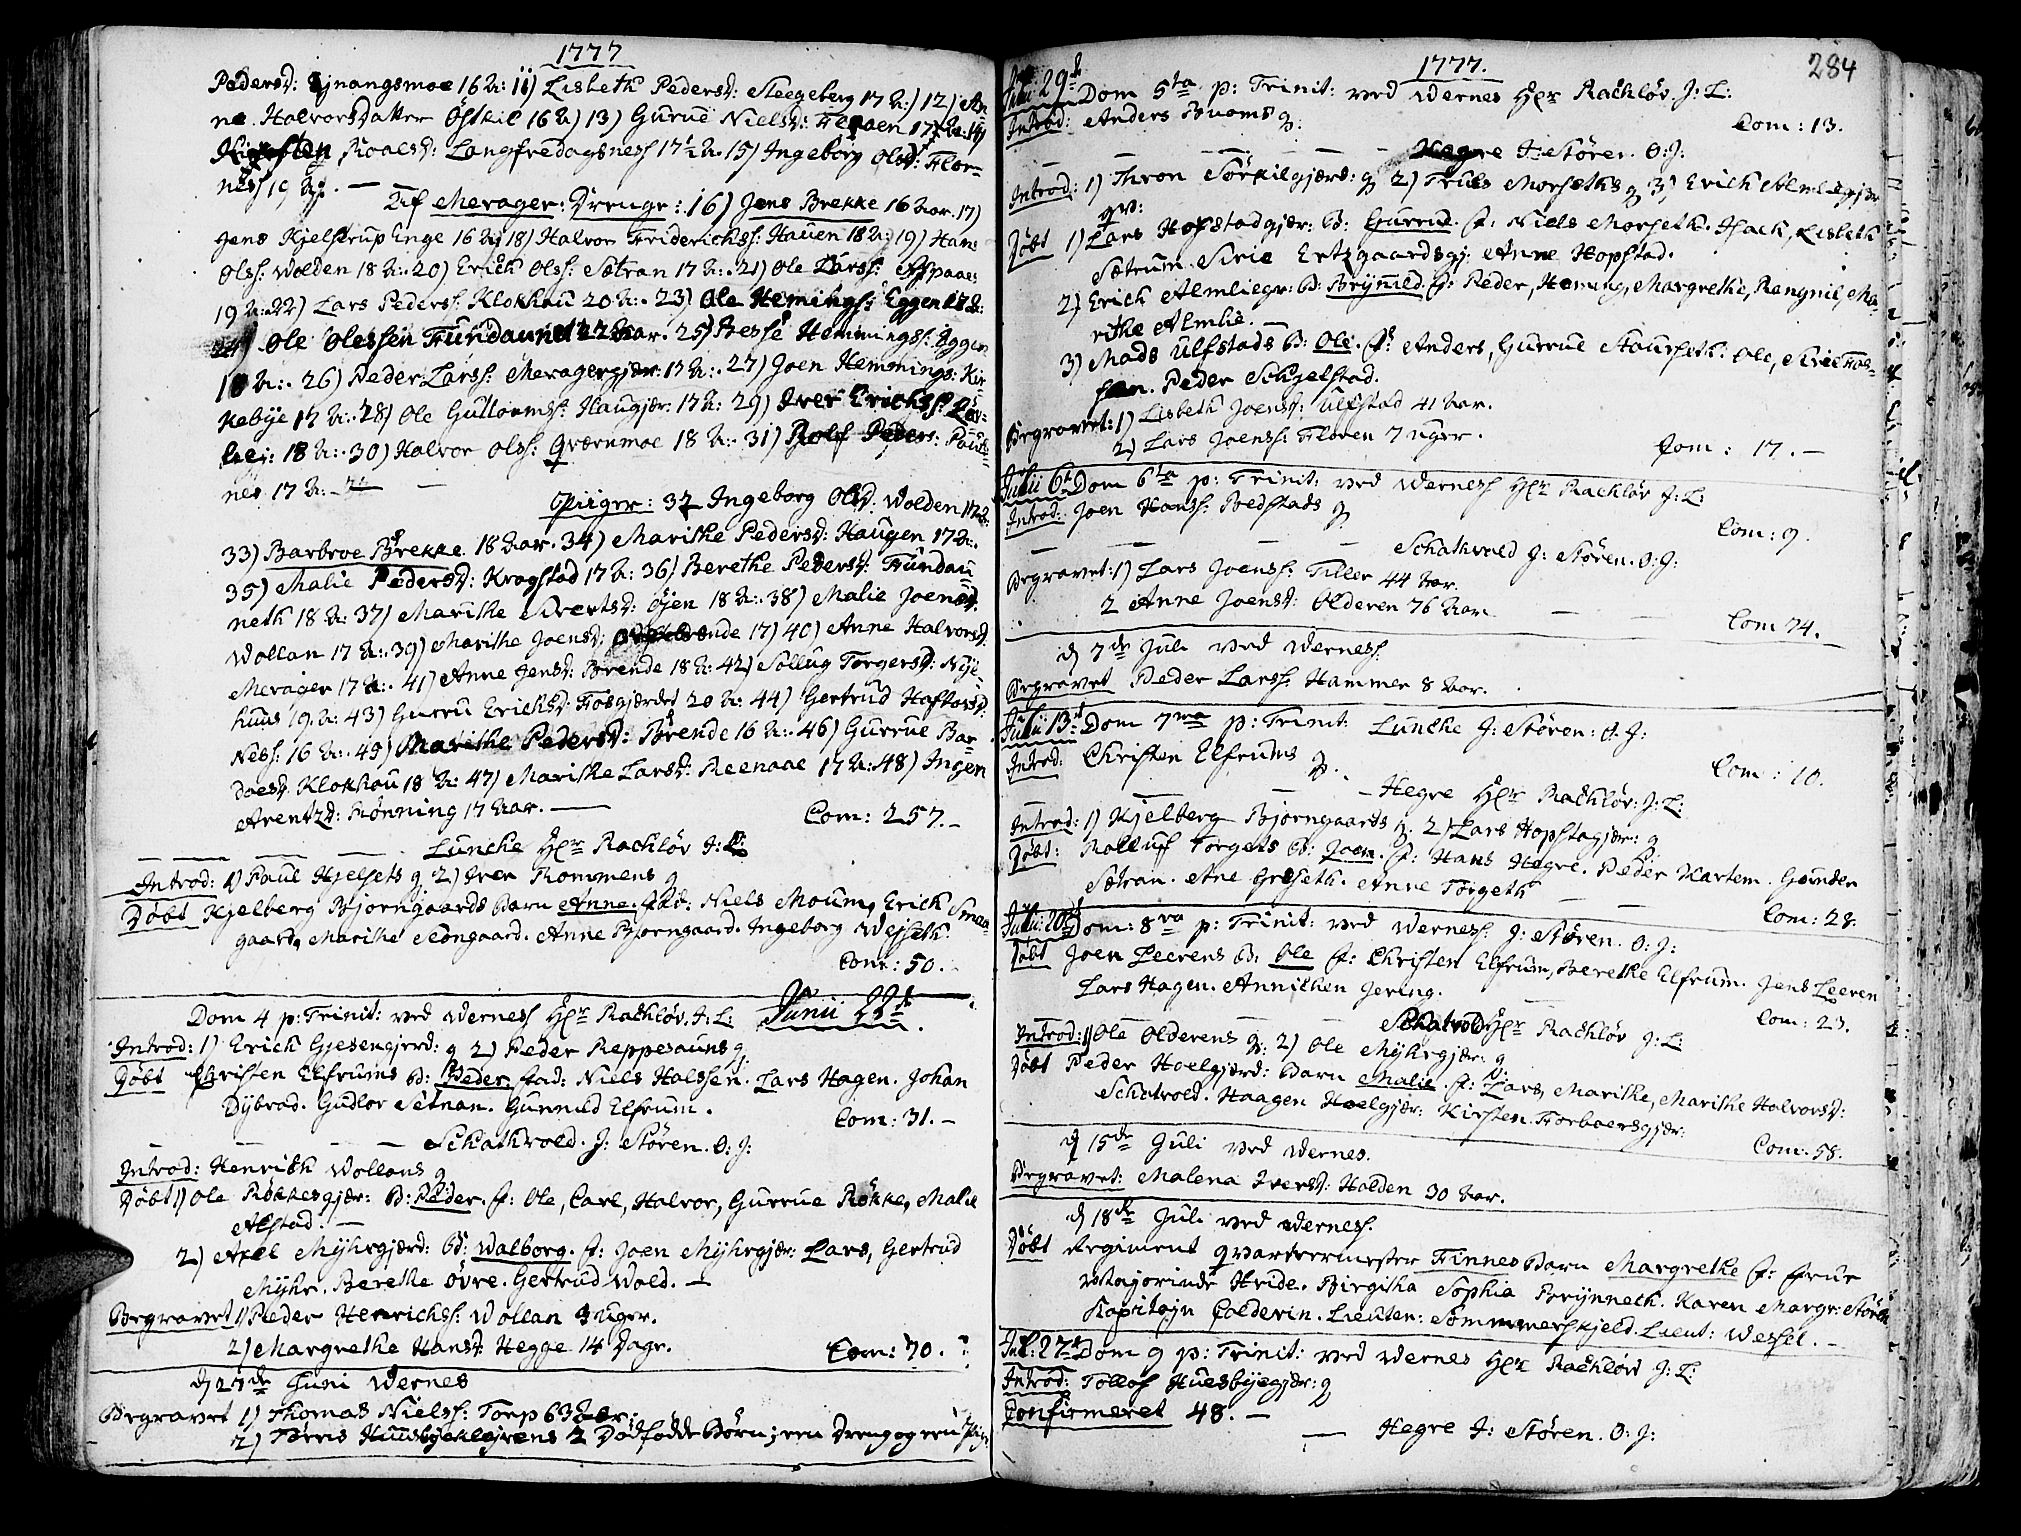 1777
Pedersd: 16 A: 11) Lisbeth Pedersd: Steegeberg 17 A:) 12) An-
ne Halvorsdatter Östkil 16 A) 13) Guruë Nielsd: 17 A: 14)
Roalsd: Langfredagsness 17½ A. 15) Ingeborg Olsd: Flor-
ness 19 A. —
Af Merager: Drenge: 16) Jens Brekke 16 Aar. 17)
Jens Kjelstrup Enge 16 A: 18) Halvor Friderichss: Hauen 18 A: 19) Hans
Olss: Wolden 18 A: 20) Erich Olss: Sætran 17 A: 21) Ole Larss:
19 A: 22) Lars Pederss: Klokhau 20 A: 23) Ole Hemings: Eggen 17 A:
24) Ole Olessen Fundaunet 22 Aar. 25) Hemmingss: Eggen
18 A: 26) Peder Larss: Meragergjær: 17 A: 27) Joen Hemmings: Kir-
kebye 17 A: 28) Ole Gulloemss: Haugjær: 17 A: 29) Iver Erichss:
18 A: 30) Halvor Olss: Qværnmoe 18 A: 31) Rolf Peders:
nes 17 A: —
Piiger: 32 Ingeborg Olsd: Wolden 17 A:
33) Barbroe Brekke 18 Aar. 34) Marithe Pedersd: Haugen 17 A:
35) Malie Pedersd: Kragstad 17 A: 36) Berethe Pedersd: Fundau-
neth 18 A: 37) Marithe Sivertsd: Öyen 18 A: 38) Malie Joensd:
Wollan 17 A: 39) Marithe Joensd: 17) 40) Anne Halvorsd:
Merager 17 A: 41) Anne Jensd: Brende 18 A: 42) Sollug Torgersd: Nye-
huus 19 A: 43) Gurru Erichsd: Fosgjærdet 20 A: 44) Gertrud Haftorsd:
Ness: 16 A: 45) Marithe Pedersd: Brende 16 A: 46) Gurrue Bar-
doesd: Klokhou 18 A: 47) Marithe Larsd: Reenaae 17 A: 48) Ingen
Arentzd: Rönning 17 Aar. —
Com: 257. —
Luncke Hr Rachlöv J: L:
Introd: 1) Paul Hjelsets q 2) Iver Rommens q
Döbt Kjelberg Bjorngaards Barn Anne. fad: Niels Moum, Erich Smaa-
gaard, Marithe Stongaard. Anne Bjorngaard. Ingeborg Wejseth.
Com: 50. -
Dom 4 p: Trinit: ved Wernes Hr Rachlöv. J: L: Junii 22d
Introd: 1) Erich Gjesengjerd: q 2) Peder Reppesauns q
Döbt Christen Elfrums B: Peder. fad: Niels Halssen. Lars Hagen. Johan
Dybvad. Gudlor Setnan. Gunnild Elfrum.
Com: 31. -
Schathvold. J: Stören. O: J:
Introd: Henrich Wollans q
Döbt 1) Ole Rökkesgjær: B: Peder. f: Ole, Carl, Halvor, Gurrue Rökke, Malie
Alstad. —
2) Axel Myhrgjærd: B: Walborg. f: Joen Myhrgjær: Lars, Gertrud
Myhr. Berethe Övre. Gertrud Wold. —
Begravet 1) Peder Henrichss: Wollan 3 Uger.
2) Margrethe Hansd: Hegge 14 Dage.
Com: 70.
d 27de Juni Wernes
Begravet 1) Thomas Nielss: Torp 63 Aar:
2) Huusbyeklejvens 2 Dödfödde Börn; een Dreng og een Pige
1777.
284
Junii 29d Dom 5ta p: Trinit: ved Wernes Hr Rachlöv. J: L:
Introd: Anders Buoms q.
Com: 13.
Hegre J: Störer. O: J:
Introd: 1) Thron Sörkilgjærd: q 2) Truls Morseths q 3) Erich Almliegjær
qv:
Döbt 1) Lars Hofstadgjær: B: Gurrud. f: Niels Morseth. Isack, Lisbeth
Sætrum. Sirie Ertzgaardsgj: Anne Hopstad.
2) Erich Almliegr: B: Brynild. f: Peder, Heming, Margrethe, Rangnil, Ma-
rithe Almlie. —
3) Mads Ulfstads B: Ole. f: Anders, Gurrue Stourseth. Ole,
Peder Schjelstad.
Begravet: 1) Lisbeth Joenss: Ulfstad 41 Aar.
2) Lars Joenss: Floren 7 uger.
Com: 17. —
Julii 6t Dom 6ta p: Trinit: ved Werness Hr Rachlöv J: L:
Introd: Joen Hanss: Bedstads q
Com: 9.
Schathvold J: Stören. O: J:
Begravet: 1) Lars Joenss: Tiller 44 Aar.
2 Anne Joensd: Olderen 76 Aar.
Com 74.
d 7de Juli ved Werness.
Begravet Peder Larss: Hammer 8 Aar.
Julii 13d Dom 7ma p: Trinit: Luncke J: Stören: O: J:
Introd: Christen Elfrums q.
Com: 10.
Hegre Hr Rachlöv: J: L:
Introd: 1) Kjelberg Bjorngaards q. 2) Lars Hopstagjær: q
Döbt: Rolluf Torgets B: Joen. f: Hans Hegre. Peder Kartem. Gunder
Sætran. Ane Græseth. Anne Torgeth
Com: 28.
Julii 20d Dom: 8va p: Trinit: ved Werness. J: Stören. O: J:
Döbt Joen Leerens B: Ole f: Christen Elfrum, Berethe Elfrum. Jens Leeren
Lars Hagen. Annichen Jering.
Com: 23.
Schatvold Hr Rachlöv J: L:
Introd: 1) Ole Olderens q: 2) Ole Myhrgjær: q
Döbt Peder Hoelgjærd: Barn Malie. f: Lars, Marithe, Marithe Halvorsd:
Schatvold. Haagen Hoelgjær: Kirsten Forboersgjær:
Com: 58.
d 15de Juli ved Wernes.
Begravet: Malena Iversd: Halden 30 Aar.
d 18de Juli ved Werness.
Döbt Regiment Qvarteermester Finnes Barn Margrethe f: frue
Majorinde Hvide. Birgitha Sophia Brynneth. Karen Margr: Stören
Kapitejn Colderin. Lieuten: Sommerskjeld. Lieut: Wessel. -
Jul: 27d Dom 9 p: Trinit: ved Wernes Hr Rachlöv J: L:
Introd: Tollof Huusbyegjær: q
Confirmeret 48. —
— Hegre J: Stören. O: J: